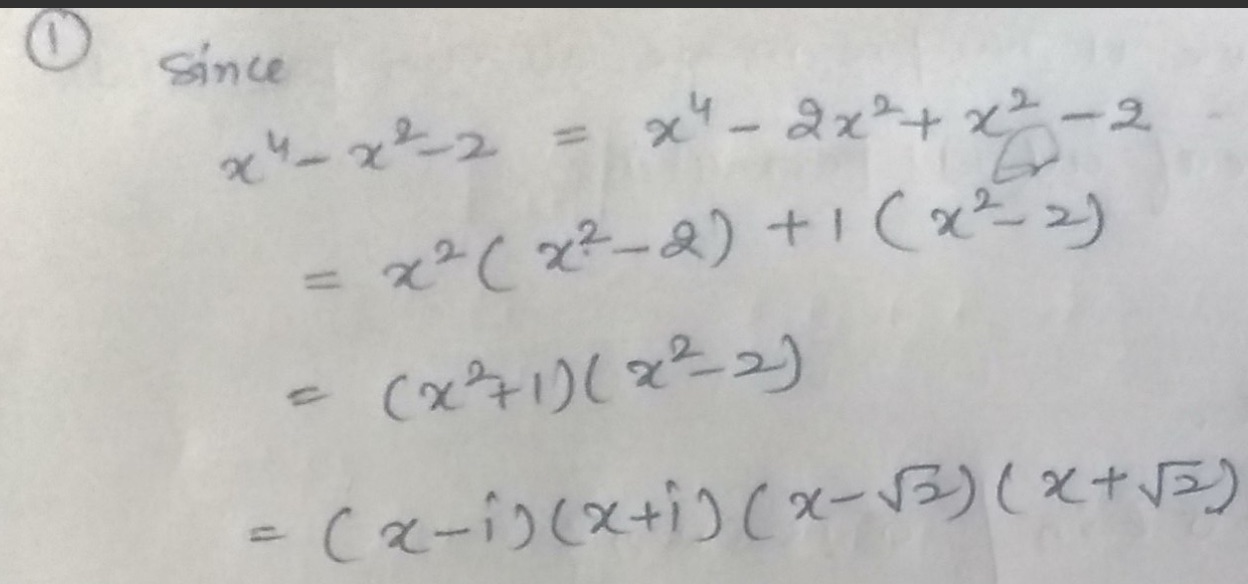 ① Since
x⁴ - x² - 2 = x⁴ - 2x² + x² - 2
= x² ( x² - 2) + 1 ( x² - 2)
= (x² + 1) ( x² - 2)
= ( x - i) (x + i) ( x - √2) ( x + √2)